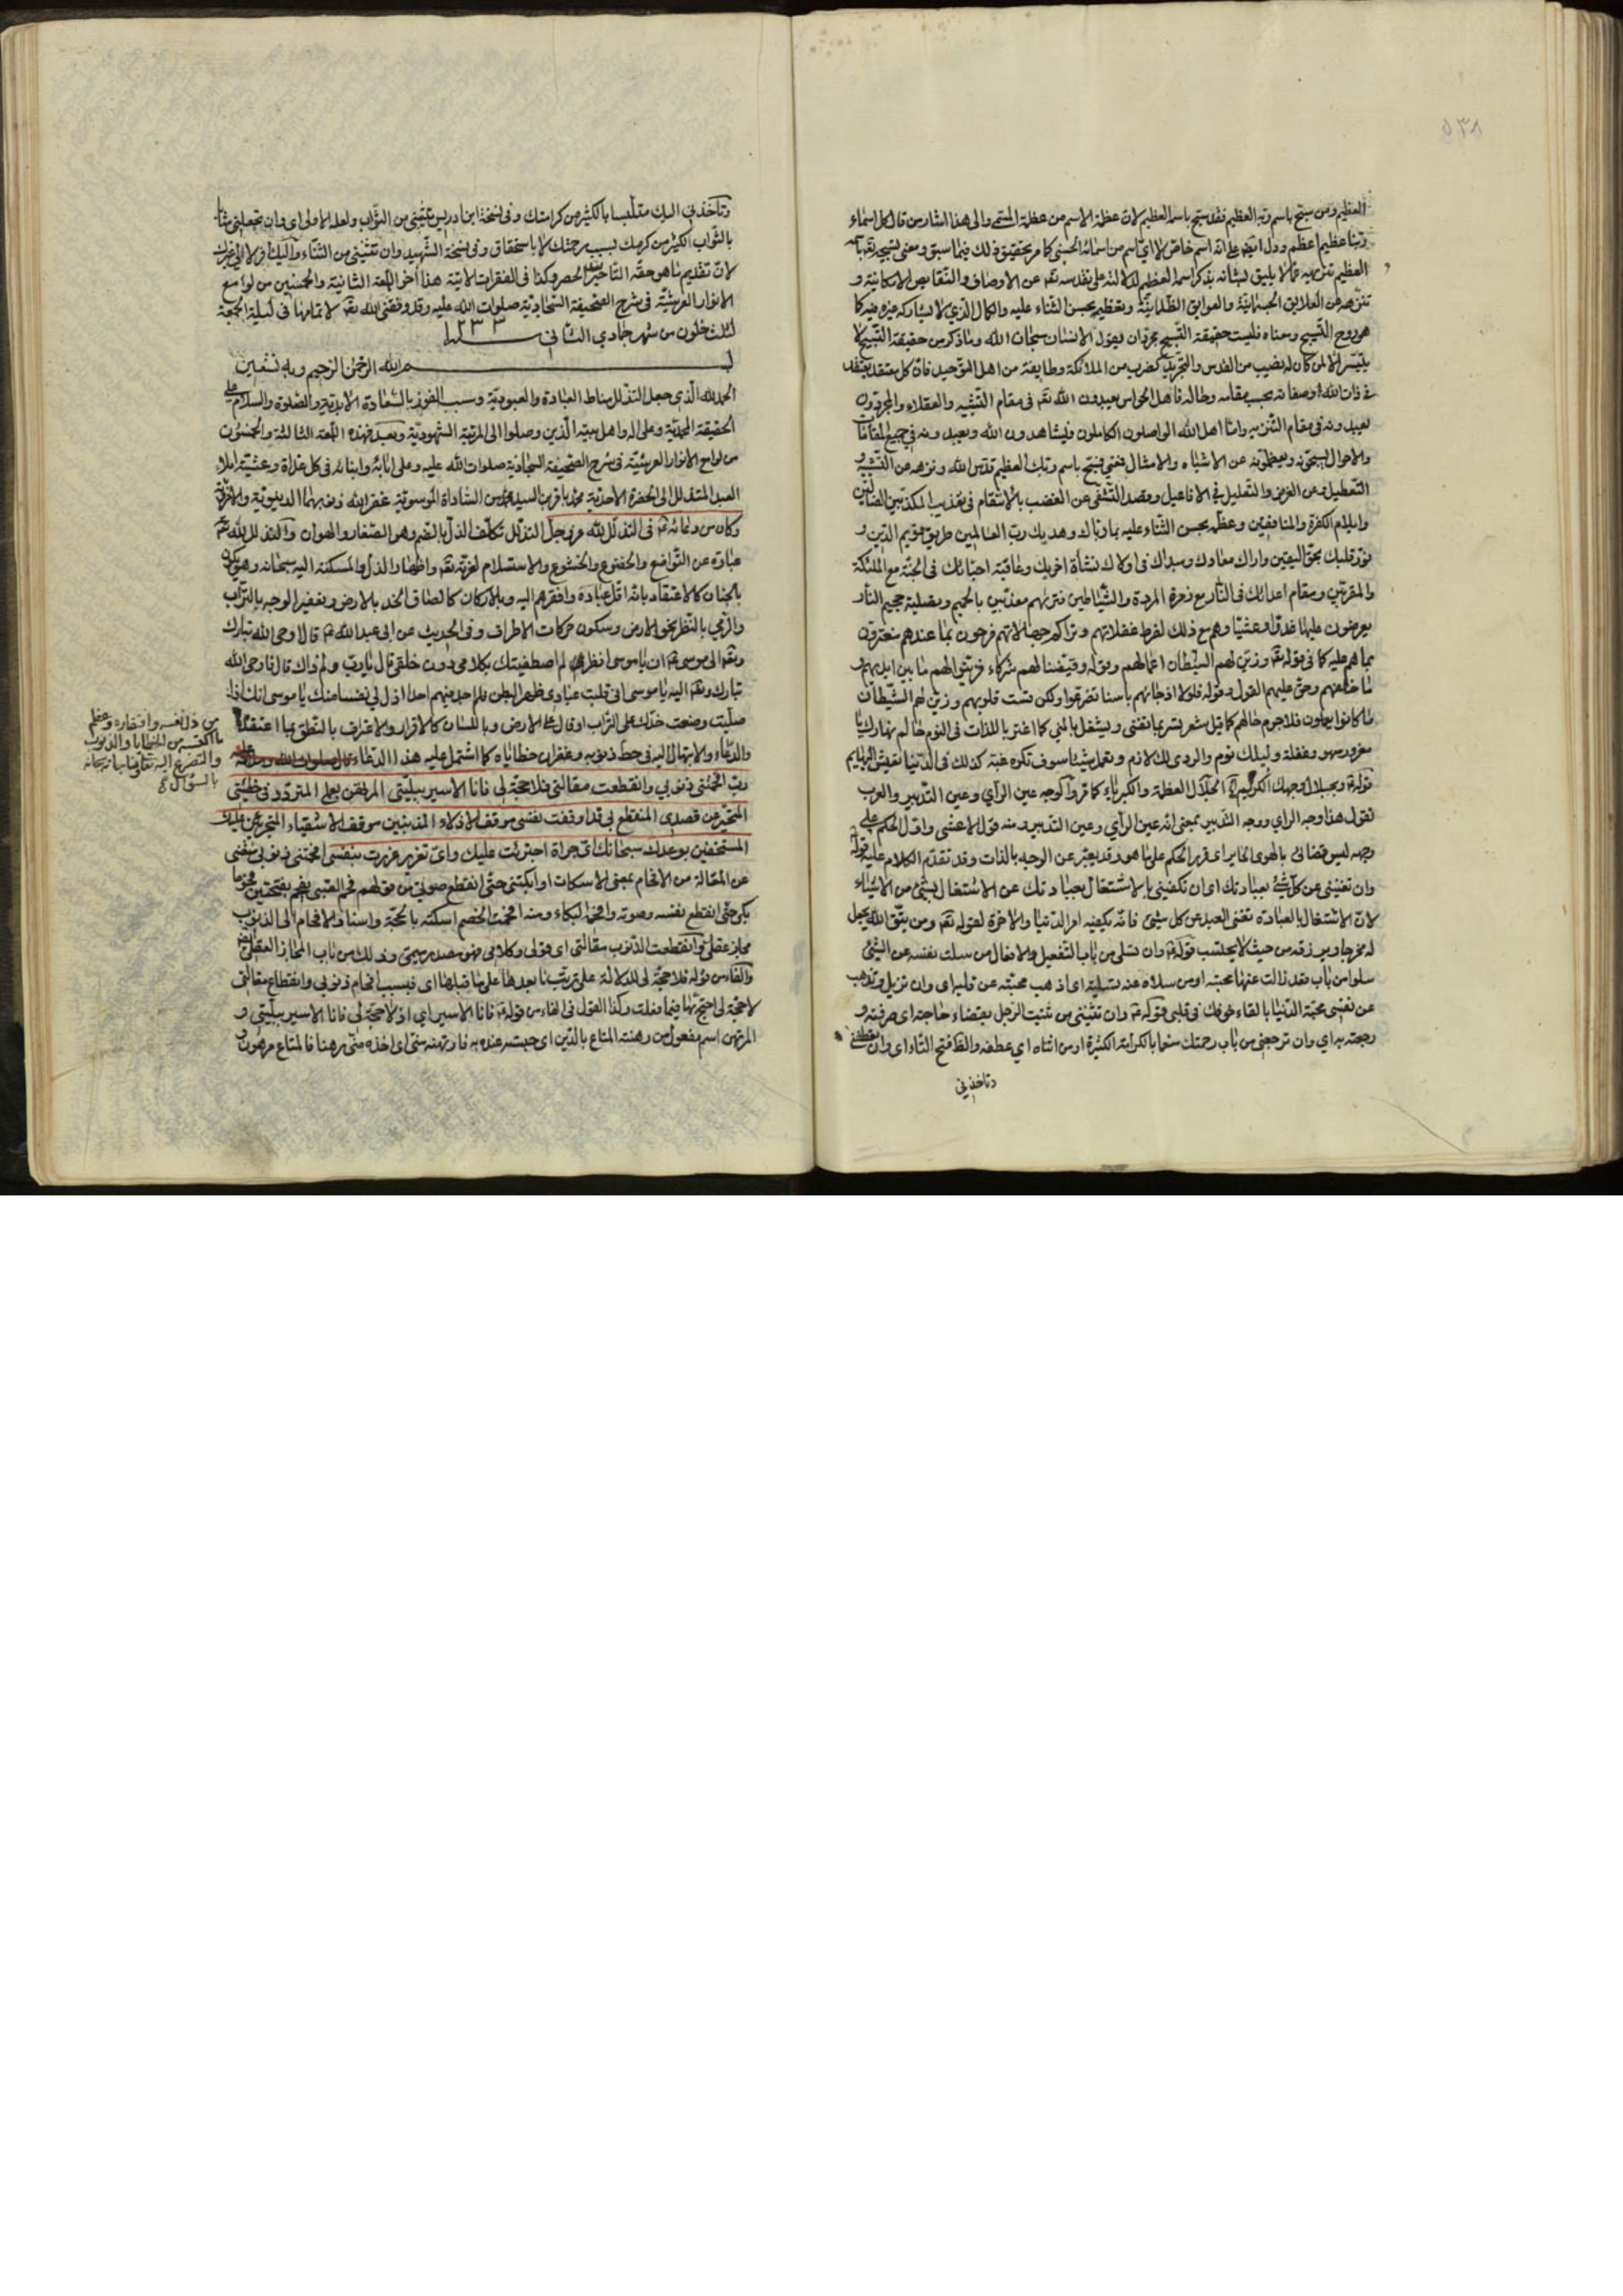 ٥٣٨
العظيم ومن سبح باسم ربه العظيم فقد سبح باسمه العظيم لان عظمة الاسم من عظمة المسمى والى هذا اشار من قال كل اسماء
ربنا عظيم اعظم ودل ايضا على انه اسم خاص لا اي اسم من اسمائه الحسنى كما مر تحقيق ذلك فيما سبق ومعنى تسبيحه لقبا باسمه
العظيم تنزيهه عما لا يليق بشانه بذكر اسمه العظيم لدلالته على تقدسه تعالى عن الاوصاف والنقايص الامكانية و
تنزهه عن العلايق الجسمانية والعوايق الظلمانية وتعظيمه بحسن الثناء عليه والكمال الذي لا يشاركه غيره فيه كما
هو روح التسبيح ومعناه فليست حقيقة التسبيح بمجرد ان يقول الانسان سبحان الله وما ذكر من حقيقة التسبيح لا
يتيسر الا لمن كان له نصيب من القدس والتجريد كضرب من الملائكة وطايفة من اهل التوحيد فان كل معتقد يعتقد
في ذات الله وصفاته بحسب مقامه وحاله فاهل الحواس يعبدون الله تعالى في مقام التشبيه والعقلاء والمجردون
يعبدونه في مقام التنزيه واما اهل الله الواصلون الكاملون فيشاهدون الله ويعبدونه في جميع المقامات
والاحوال يسبحونه ويعظمونه عن الاشباه والامثال فمعنى فسبح باسم ربك العظيم قدس الله ونزهه عن التشبيه و
التعطيل وعن الغرض والتعليل في الافاعيل وقصد التشفي عن الغضب بالانتقام في تعذيب المكذبين الضالين
وايلام الكفرة والمنافقين وعظمه بحسن الثناء عليه بما رباك وهديك رب العالمين طريق قويم الدين و
نور قلبك بحق اليقين واراك معادك ومبداك في اولاك نشأة اخريك وعاقبة احبائك في الجنة مع الملئكة
والمقربين ومقام اعدائك في النار مع زمرة المردة والشياطين فتريهم معذبين بالحميم وتصلية جحيم النار
يعرضون عليها غدوا وعشيا وهم مع ذلك لفرط غفلاتهم وتراكم جهالاتهم فرحون بما عندهم مغترون
بما هم عليه كما في قوله تعالى وزين لهم الشيطان اعمالهم وقوله وقيضنا لهم قرناء فزينوا لهم ما بين ايديهم و
ما خلفهم وحق عليهم القول وقوله فلولا اذ جاءهم باسنا تضرعوا ولكن قست قلوبهم وزين لهم الشيطان
ما كانوا يعملون فلا جرم حالهم كما قيل شعر يسر بما تفنى ويشغل بالمنى كما اغتر باللذات في النوم حالم نهارك يا
مغرور سهو وغفلة وليلك نوم والردى لك لازم وتعمل شيئا سوف تكره غبه كذلك في الدنيا تعيش البهايم
قوله وبجلال وجهك الكريم الجلال العظمة والكبرياء كما مر والوجه عين الراي وعين التدبير والعرب
تقول هذا وجه الراي ووجه التدبير بمعنى انه عين الراي وعين التدبير ومنه قول الاعشى واول الحكم على
وجهه ليس قضائي بالهوى الجاير اي قرر الحكم على ما هو وقد يعبر عن الوجه بالذات وقد تقدم الكلام عليه قوله
وان تغنيني عن كل شيء بعبادتك اي ان تكفيني بالاشتغال بعبادتك عن الاشتغال بشيء من الاشياء
لان الاشتغال بالعبادة يغني العبد عن كل شيء فانه يكفيه امر الدنيا والاخرة لقوله تعالى ومن يتق الله يجعل
له مخرجا ويرزقه من حيث لا يحتسب قوله وان تسلي من باب التفعيل والافعال من سلت نفسه عن الشيء
سلوا من باب قعد زالت عنها محبته او من سلاه عنه تسلية اي اذهب محبته عن قلبه اي وان تزيل وتذهب
عن نفسي محبة الدنيا بالقاء خوفك في قلبي قوله وان تثنيني من ثنيت الرجل بقضاء حاجته اي صرفته و
رجعته به اي وان ترجعني من باب رحمتك منعما بالكرامة الكثيرة او من اثناه اي عطفه وانعطف فتح التاء اي وان تعطفني
وتاخذني
وتاخذني اليك متلبسا بالكثير من كرامتك وفي نسخة ابن ادريس تثيبني من الثواب ولعله الاولى اي وان تجعلني مثابا
بالثواب الكثير من كرمك بسبب رحمتك لا باستحقاق وفي نسخة الشهيد وان تثنيني من الثناء واليك فر لا الى غيرك
لان تقديم ما هو حقه التاخير يفيد الحصر وكذا في الفقرات الاتية هذا آخر اللمعة الثانية والخمسين من لوامع
الانوار العرشية في شرح الصحيفة السجادية صلوات الله عليه وقد وفقني الله تعالى لاتمامها في ليلة الجمعة
لثلث خلون من شهر جمادي الثاني سنة ١٢٣٣
بسم الله الرحمن الرحيم وبه نستعين
الحمد لله الذي جعل التذلل مناط العبادة والعبودية وسبب الفوز بالسعادة الابدية والصلوة والسلام على
الحقيقة المحمدية وعلى اله واهل بيته الذين وصلوا الى المرتبة الشهودية وبعد فهذه اللمعة الثالثة والخمسون
من لوامع الانوار العرشية في شرح الصحيفة السجادية صلوات الله عليه وعلى ابائه وابنائه في كل غداة وعشية املاء
العبد المتذلل الى الحضرة الاحدية محمد باقر بن السيد محمد من السادات الموسوية غفر الله ذنوبهما الدينوية والاخروية
وكان من دعائه في التذلل لله عز وجل التذلل تكلف الذل بالضم وهو الصغار والهوان والتذلل لله تعالى
عبارة عن التواضع والخضوع والخشوع والاستسلام لعزته تعالى واظهار الذل والمسكنة اليه سبحانه وهو يكون
بالجنان كالاعتقاد بانه اقل عباده وافقرهم اليه وبالاركان كالصاق الخد بالارض وتعفير الوجه بالتراب
والرمي بالنظر نحو الارض وسكون حركات الاطراف وفي الحديث عن ابي عبد الله قال اوحى الله تبارك
وتعالى الى موسى ان يا موسى اتدري لم اصطفيتك بكلامي دون خلقي قال يا رب ولم ذاك قال فاوحى الله
تبارك وتعالى اليه يا موسى اني قلبت عبادي ظهرا لبطن فلم اجد فيهم احدا اذل لي نفسا منك يا موسى انك اذا
صليت وضعت خدك على التراب او قال على الارض وباللسان كالاقرار والاعتراف بالنطق بما اعتقد
من ذل نفسه وافتقاره وعظم
ما اكتسبه من الخطايا والذنوب
والتضرع اليه تعالى
بالسؤال صح
والدعاء والابتهال اليه في حط ذنوبه وغفران خطاياه كما اشتمل عليه هذا الدعاء
رب افحمتني ذنوبي وانقطعت مقالتي فلا حجة لي فانا الاسير ببليتي المرتهن بعملي المتردد في خطيئتي
المتحير عن قصدي المنقطع بي قد اوقفت نفسي موقف الاذلاء المذنبين موقف الاشقياء المتجرئين عليك
المستخفين بوعدك سبحانك اي جراة اجترئت عليك واي تغرير غررت بنفسي افحمتني ذنوبي منعتني
عن المقالة من الافحام بمعنى الاسكات او ابكتني حتى انقطع صوتي من قولهم فحم الصبي يفحم بفتحتين فحوما
بكى حتى انقطع نفسه وصوته وافحمه البكاء ومنه افحمت الخصم اسكته بالحجة واسناد الافحام الى الذنوب
مجاز عقلي وانقطعت الذنوب مقالتي اي قولي وكلامي فهو مصدر ميمي وذلك من باب المجاز العقلي
والفاء من قوله فلا حجة لي للدلالة على ترتب ما بعدها على ما قبلها اي فبسبب افحام ذنوبي وانقطاع مقالتي
لا حجة لي احتج بها فيما فعلت وكذا القول في الفاء من قوله فانا الاسير اي اذ لا حجة لي فانا الاسير ببليتي و
المرتهن اسم مفعول من رهنته المتاع بالدين اي حبسته عنده به فارتهنه مني اي اخذه مني رهنا فالمتاع مرهون و